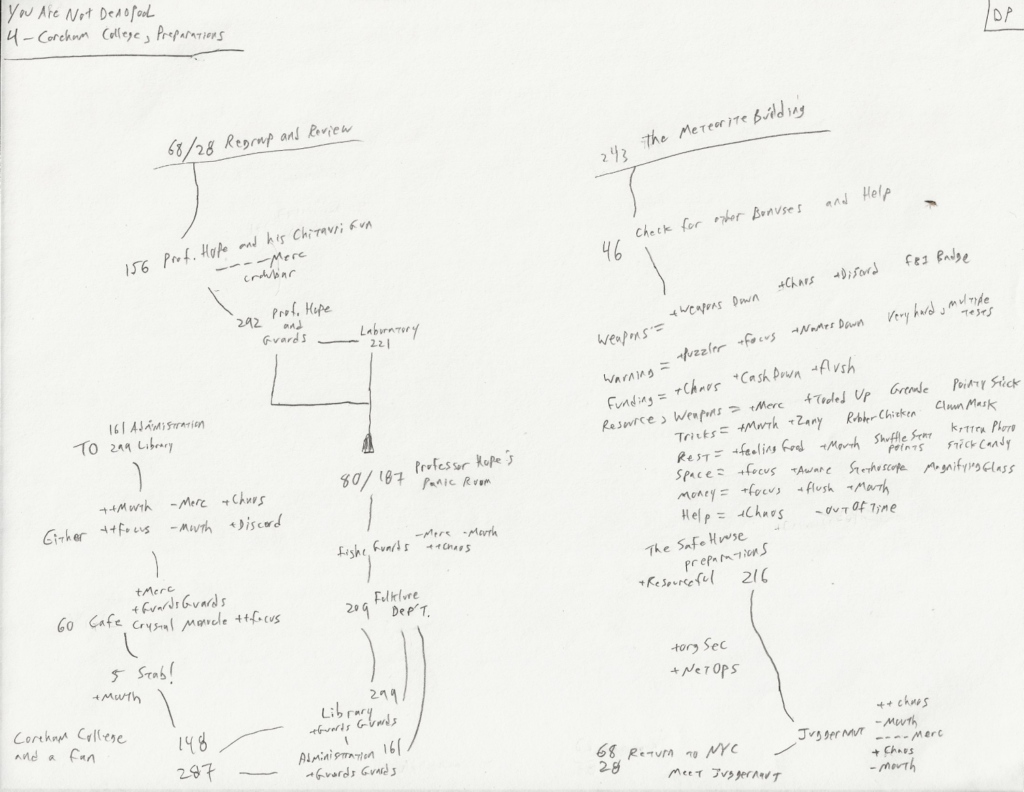 You Are Not Deadpool
4 - Coreham College, Preparations
DP
68/28 Regroup and Review
156 Prof. Hope and his Chitauri Gun
---- Merc
crowbar
292 Prof. Hope
and
Guards
Laboratory
221
161 Administration
TO 299 Library
++Mouth -Merc +Chaos
Either ++Focus -Mouth +Discord
+Merc
+Guards Guards
60 Cafe Crystal Monocle ++Focus
5 Stab!
+Mouth
Coreham College
and a Fan
148
287
80/187 Professor Hope's
Panic Room
Fight Guards -Merc -Mouth
++Chaos
209 Folklore
Dep'T.
299
Library
+Guards Guards
Administration 161
+Guards Guards
243 The Meteorite Building
46 Check for other Bonuses and Help
Weapons = +Weapons Down +Chaos +Discord FBI Badge
Warning = +Puzzler +Focus +Names Down Very hard, multiple tests
Funding = +Chaos +Cash Down +Flush
Resource, Weapons = +Merc +Tooled Up Grenade Pointy Stick
Tricks = +Mouth +Zany Rubber Chicken Clown Mask
Rest = +Feeling Good +Mouth Shuffle Stat Points Kitten Photo Stick Candy
Space = +Focus +Aware Stethoscope Magnifying Glass
Money = +Focus +Flush +Mouth
Help = +Chaos -Out Of Time
The Safe House
preparations
+Resourceful 216
+Org Sec
+Net Ops
Juggernaut
++Chaos
-Mouth
---- Merc
+Chaos
-Mouth
68 Return to NYC
28 Meet Juggernaut